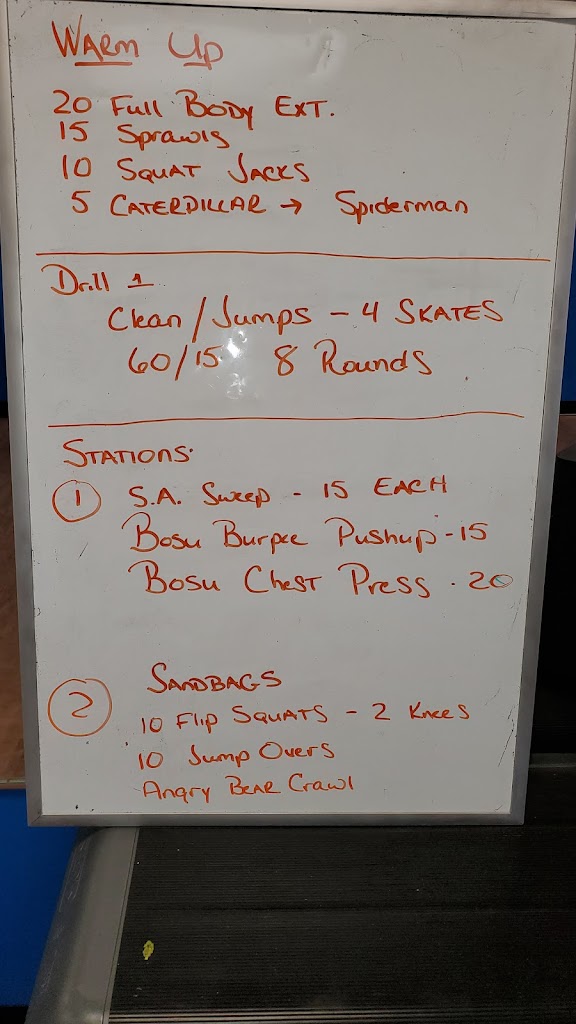 Warm Up
20 Full Body Ext.
15 Sprawls
10 Squat Jacks
5 Caterpillar → Spiderman
Drill 1
Clean/Jumps - 4 Skates
60/15 8 Rounds
Stations:
1 S.A. Sweep - 15 Each
Bosu Burpee Pushup - 15
Bosu Chest Press - 20
Sandbags
2 10 Flip Squats - 2 Knees
10 Jump Overs
Angry Bear Crawl